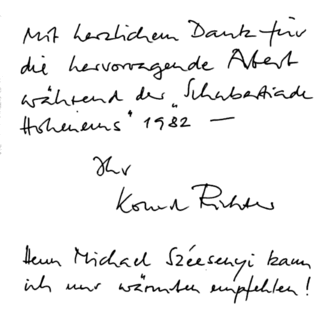 Mit herzlichem Dank für
die hervorragende Abeit
während der „Schubertiade
Hohenems" 1982 —
Ihr
Konrad Richter
Herrn Michael Szécsenyi kann
ich nur wärmsten empfehlen!